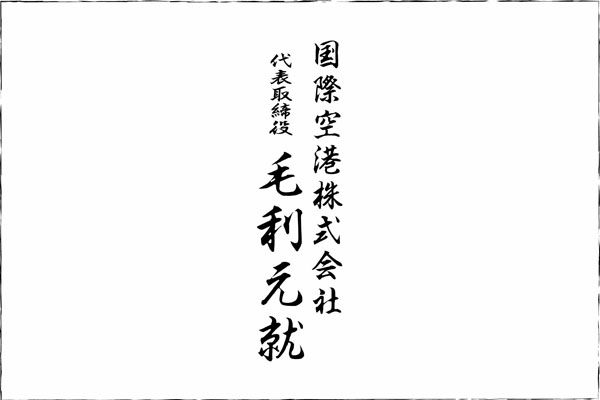 国際空港株式会社
代表取締役 毛利元就